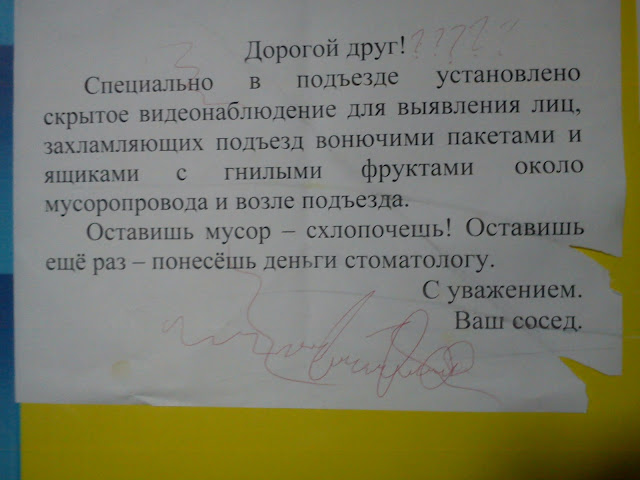 Дорогой друг! ?????
Специально в подъезде установлено
скрытое видеонаблюдение для выявления лиц,
захламляющих подъезд вонючими пакетами и
ящиками с гнилыми фруктами около
мусоропровода и возле подъезда.
Оставишь мусор – схлопочешь! Оставишь
ещё раз – понесёшь деньги стоматологу.
С уважением.
Ваш сосед.